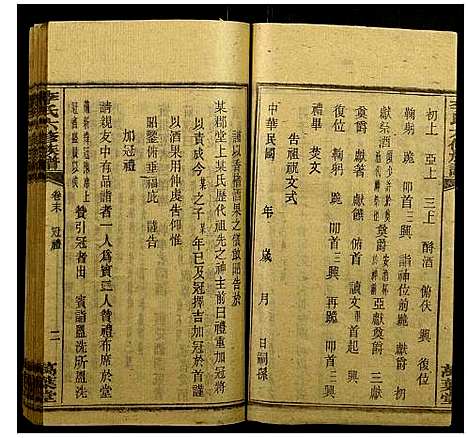 初上 亞上 三上 酹酒 俯伏 興 復位
鞠躬 跪 叩首三興 詣神位前跪 獻爵 初
獻祭酒 奠爵 亞獻奠爵 三獻
奠爵 獻著 獻饌 俯首 讀文畢首起 興
復位 鞠躬 跪 叩首三興 再跪 叩首三興
禮畢 焚文
告祖祝文式
中華民國 年 歲 月 日嗣孫
謹以香楮酒果之儀敢昭告於
某郡堂上某氏歷代祖先之神主前曰禮重加冠將
以責成今某之子某年已及冠擇吉加冠於首謹
以酒果用伸虔告仰惟
昭鑒俯垂福此 謹告
加冠禮
請親友中有德者一人為賓三人贊禮布席於堂
贊引冠者出 賓詣盥洗所盥洗
李氏六修族譜
卷末 冠禮
二
萬葉堂